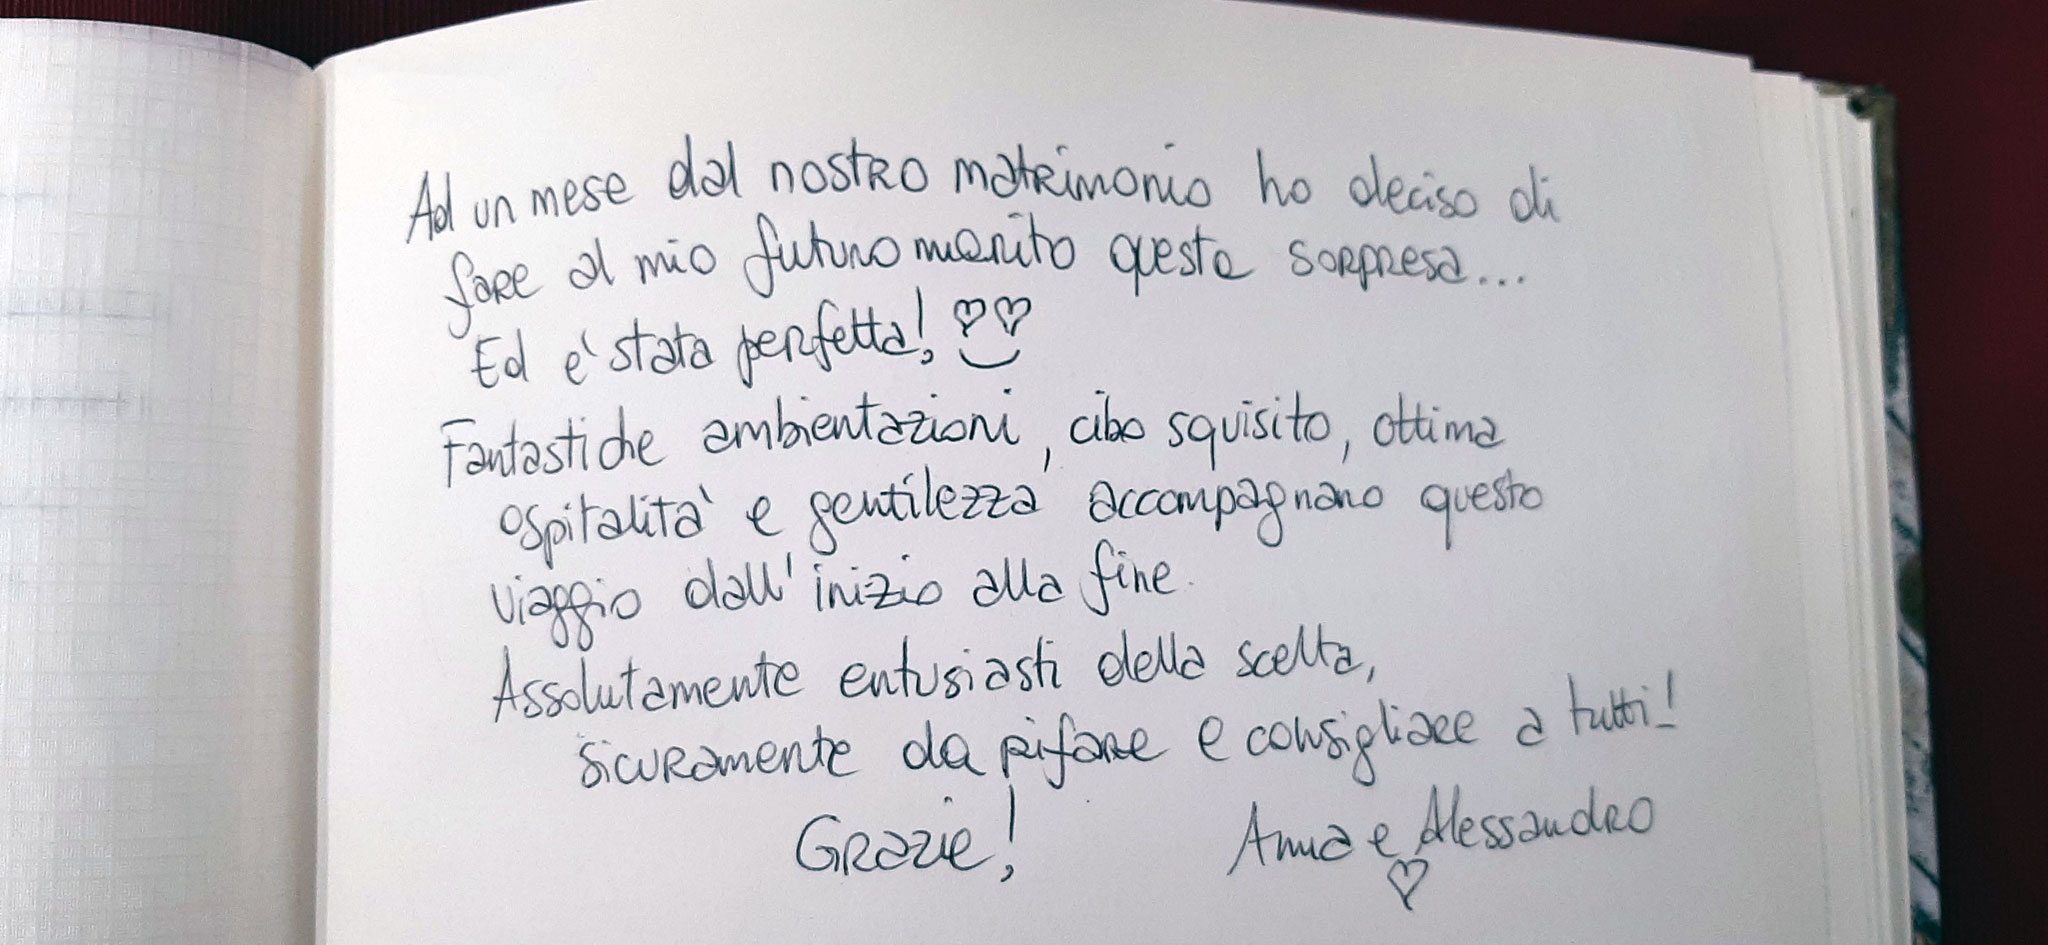 Ad un mese dal nostro matrimonio ho deciso di
fare al mio futuro marito questa sorpresa...
Ed e' stata perfetta!
Fantastiche ambientazioni, cibo squisito, ottima
ospitalità e gentilezza accompagnano questo
viaggio dall'inizio alla fine.
Assolutamente entusiasti della scelta,
sicuramente da rifare e consigliare a tutti!
Grazie! Anna e Alessandro